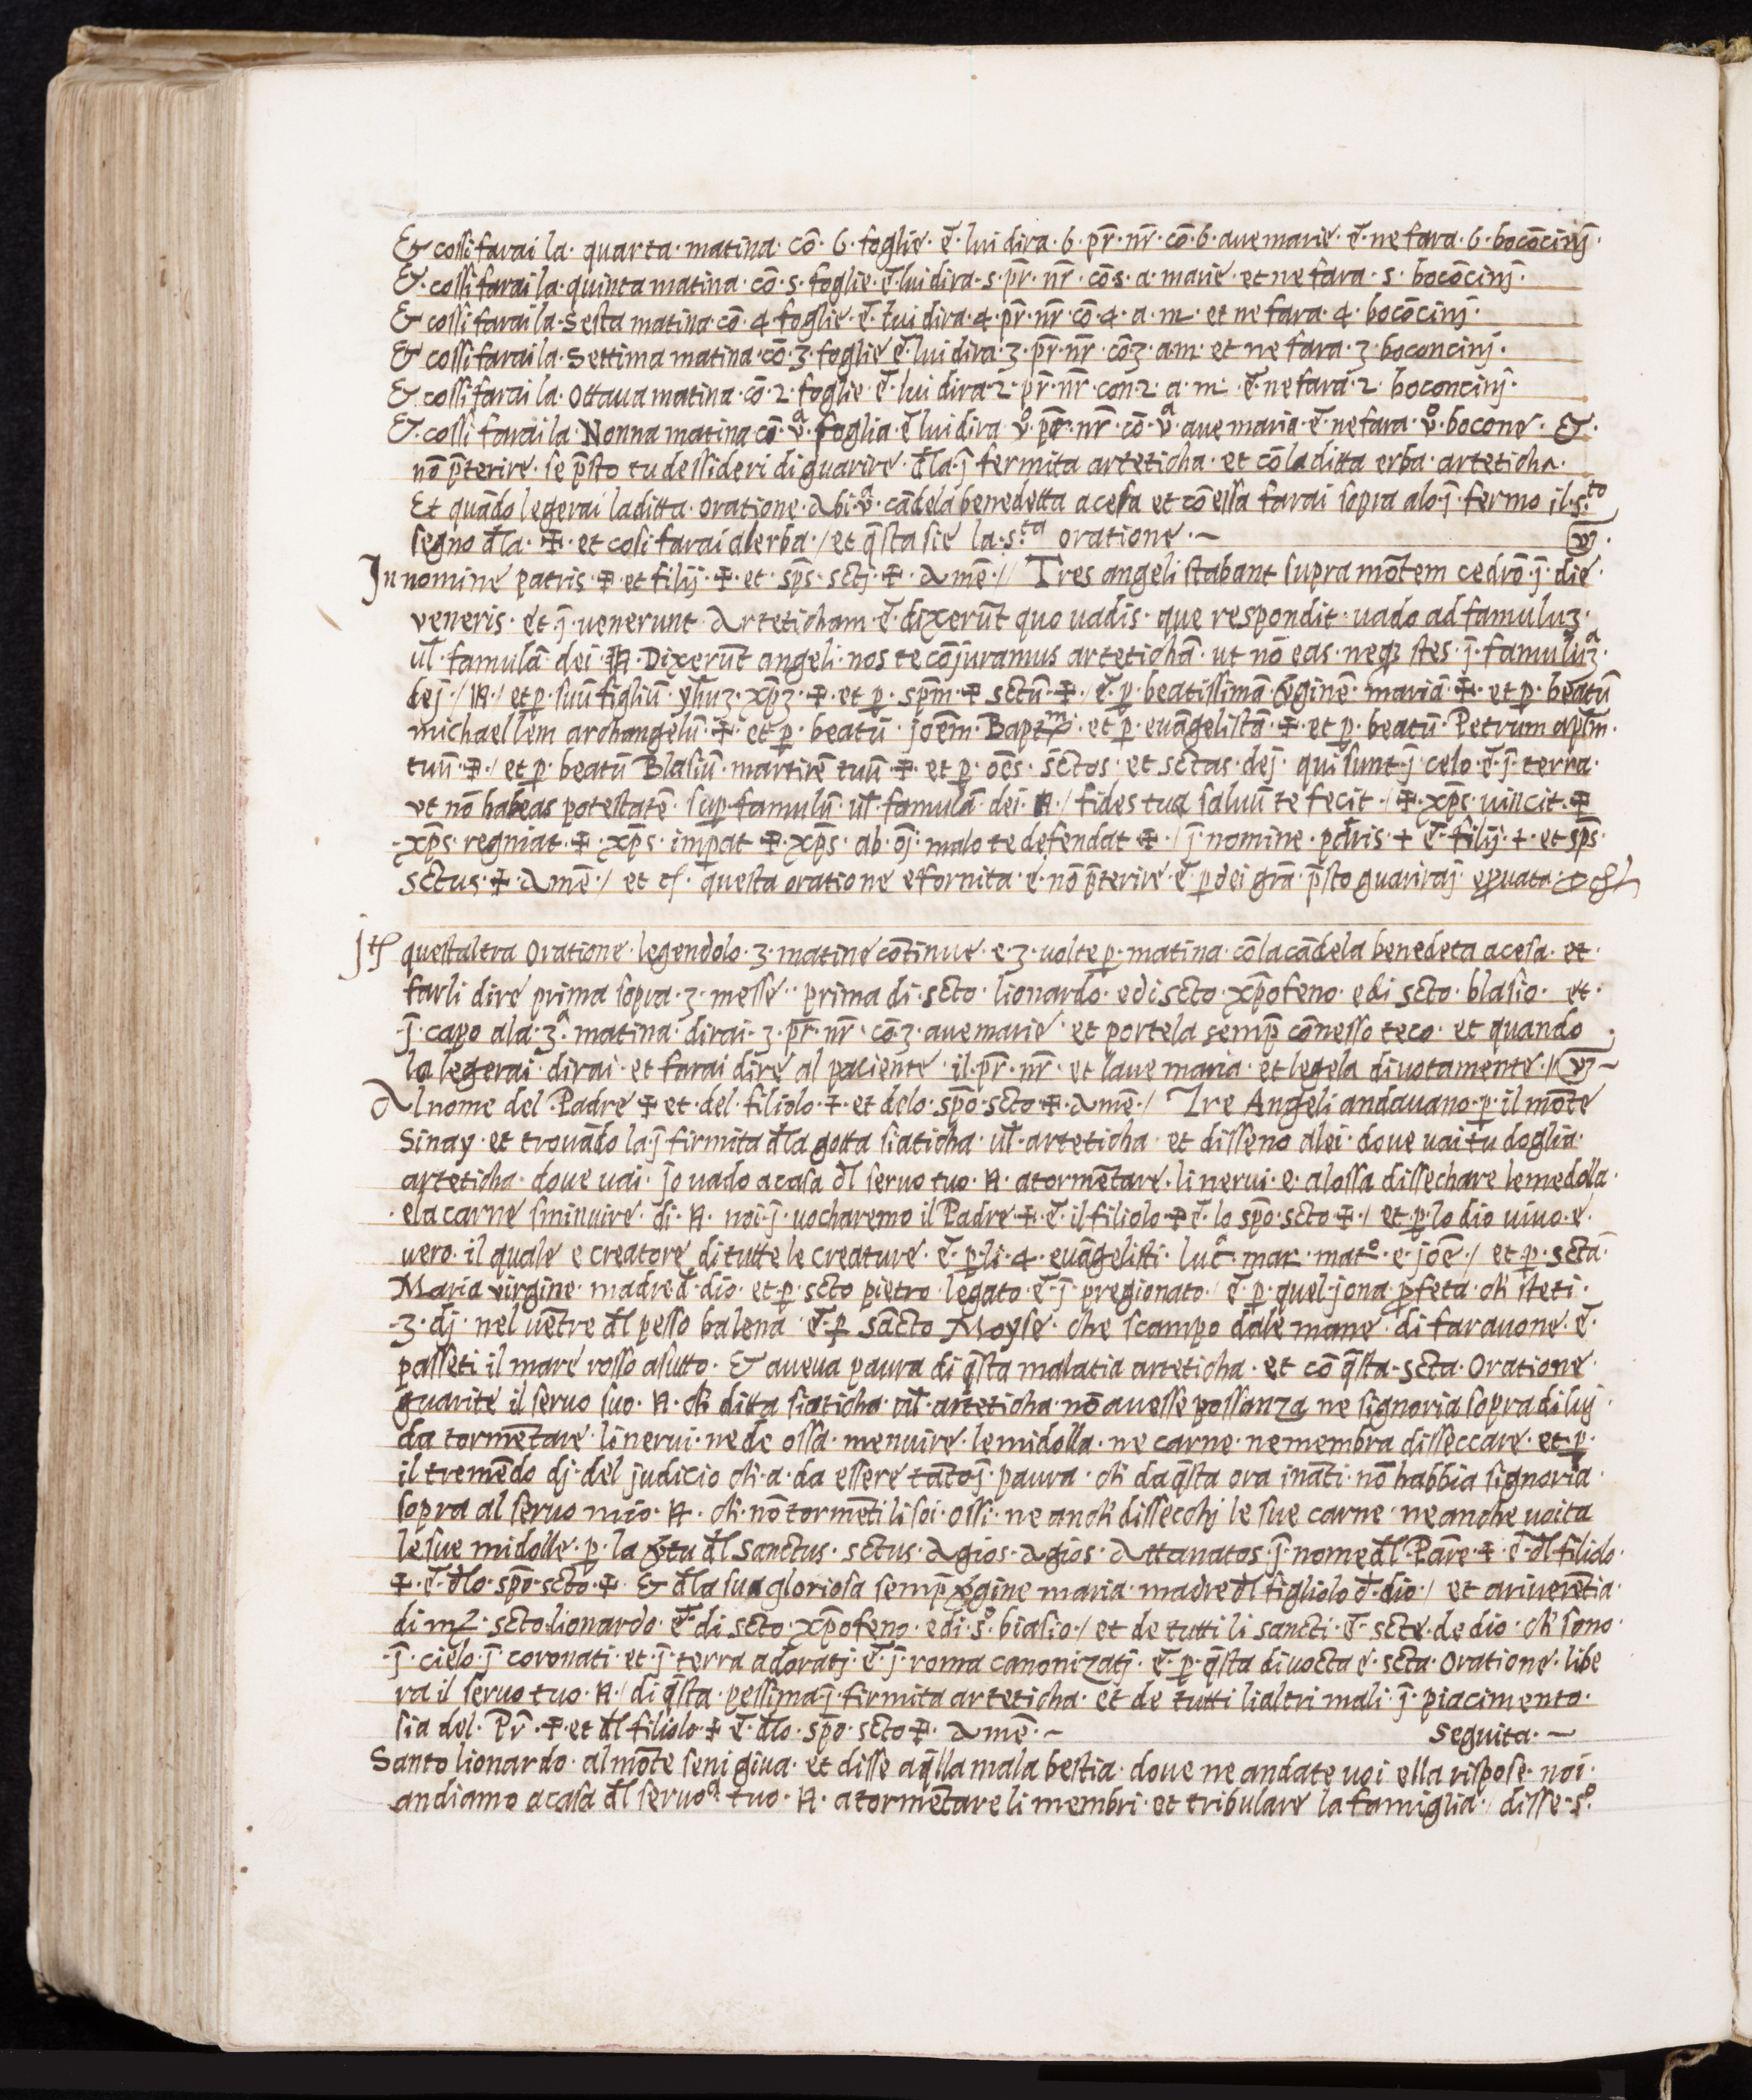 Et cossi farai la· quarta· matina· cō· 6· foglie· ē· lui dira· 6· pr̄· nr̄· cō· 6· auemarie· ē· ne fara· 6· bocōcinj·
Et· cossi farai la· quinta matina· cō· 5· foglie· ē· lui dira· 5· pr̄· nr̄· cō 5· a· marie· et ne fara· 5· bocōcinj·
Et cossi farai la· Sesta matina cō· 4 foglie· ē· lui dira· 4· pr̄· nr̄· cō· 4· a· m· et ne fara· 4· bocōcinj·
Et cossi farai la· Settima matina· cō· 3· foglie ē· lui dira· 3· pr̄· nr̄· cō 3· a·m· et ne fara· 3· boconcinj·
Et cossi farai la· Ottaua matina· cō· 2 foglie· ē· lui dira· 2· pr̄· nr̄· con· 2· a· m· ē· ne fara· 2· boconcinj·
Et· cossi farai la· Nonna matina cō· vᵃ· foglia· ē lui dira· vº· pr̄· nr̄· cō· vᵃ· aue maria· ē· ne fara· vº· bocone· Et·
nō p̄terire· se p̄sto tu dessideri di guarire· d̄la· j̄ fermita artetic̄ha· et cō la ditta erba· arteticha·
Et quādo legerai la ditta· oratione· abi· vᵃ· cādela benedetta acesa et cō essa farai sopra alo· j̄· fermo il· s·ᵗᵒ
segno d̄la· ✠· et cosi farai alerba·/ et q̄sta sie la· s·ᵗᵃ oratione·~
In nomine patris· ✠· et filij· ✠· et· sp̄s· sctj· ✠· amē·// Tres angeli stabant supra mōtem cedrō· j̄· die·
veneris· et· j̄· uenerunt· Artetic̄ham· ē· dixerūt quo uadis· que respondit· uado ad famuluȝ·
ul̄· famulā· dei· N· Dixerūt angeli· nos te cōjuramus artetichā· ut nō eas· neqȝ stes· j̄· famuluȝᵃ·
dej·/ N·/ et p̱· suū figliū· yhuȝ· xp̄ȝ· ✠· et· p̱· sp̄m· ✠ sctū· ✠·/ ē· p̱· beatissimā· v̄ginē· mariā· ✠· et p̱· beatū
michaellem archangelū· ✠· et p̱· beatū· joēm· Baptᵐ· et p̱· euāgelistā· ✠· et p̱· beatū· Petrum apl̄m·
tuū· ✠·/ et p̱· beatū Blasiū· martirē tuū· ✠· et p̱· oēs· sctos· et sctas· dej· qui sunt· j̄· celo· ē· j̄· terra·
vt nō habeas potestatē· sup̱· famulū· ul̄· famulā· dei· N·/ fides tua saluū te fecit·/ ✠· xp̄s· uincit· ✠
xp̄s· regniat· ✠· xp̄s· imp̱at ✠· xp̄s· ab· oj̄· malo te defendat ✠·/ j̄ nomine· pātris· + ē· filij· +· et sp̄s·
sctus· ✠· amē·/ et questa oratione e fornita· e· nō p̄terire· ē· p̱ dei grā· p̄sto guariraj·
questaltra Oratione· legendolo· 3· matine cōtinue· e· 3· uolte p̱· matina· cō la cādela benedeta acesa· et·
farli dire prima sopra· 3· messe·· prima di· scto· lionardo· e di scto· xp̄ofeno· e di scto· blasio· et·
j̄· capo ala· 3ᵃ· matina· dirai· 3· pr̄· nr̄· cō· 3· auemarie· et portela semp̄ cōnesso teco· et quando
la legerai· dirai· et farai dire al paciente· il· pr̄· nr̄· et laue maria· et legela diuotamente·//
Al nome del· Padre ✠ et· del· filiolo· ✠· et delo· sp̄o· scto· ✠· amē·/ Tre Angeli andauano· p̱· il mōte
Sinay· et trouādo la j̄ firmita d̄la gotta siaticha· ul̄· arteticha· et disseno alei· doue uai tu doglia·
arteticha· doue uai· jo uado a casa d̄l seruo tuo· N· a tormētare· li nerui· e· alossa dissechare le medolla·
e la carne sminuire· di· N· noi· j̄· uocharemo il Padre· ✠· ē· il filiolo· ✠ ē· lo sp̄o· scto ✠·/ et p̱· lo dio uiuo· e·
uero· il quale e creatore di tutte le creature· ē· p̱· li· 4· euāgelisti· lucᵃ mar· matº· e· joē·/ et p̱· sctā·
Maria virgine· madre d̄· dio· et· p̱· scto pietro· legato· ē· j̄· pregionato· ē· p̱· quel· jona· p̱feta· ch̄ steti·
3· dj· nel uētre d̄l pesso balena· ē· p̱ sācto Moyse· che scampo dale mane· di farauone· ē·
passeti il mare rosso asutto· Et aueua paura di q̄sta malatia arteticha· et cō q̄sta· scta· Oratione·
guarite il seruo suo· N· ch̄ ditta siaticha· ul̄· arteticha· nō auesse possanza ne signoria sopra di luj·
da tormētare· li nerui· ne de ossa· menuire· le midolla· ne carne· ne membra disseccare· et· p̱·
il tremēdo dj· del judicio ch̄· a· da essere tāto j̄· paura· ch̄ da q̄sta ora inātj· nō habbia signoria·
sopra al seruo mio· N· ch̄· nō tormēti li soi· ossi· ne anch̄ dissecchj le sue carne· ne anche uoita
le sue midolle· p̱· la v̄tu d̄l sanctus· sctus· Agios· Agios· Attanatos· j̄· nome d̄l· Pāre· ✠· ē· d̄l filiolo·
✠· ē· d̄lo· sp̄o· scto· ✠· Et d̄la sua gloriosa semp̄ v̄gine maria· madre d̄l figliolo d̄· dio·/ et ariuerētia·
di scto· lionardo· ē· di scto· xp̄ofeno· e di· sº· biasio·/ et de tutti li sancti· ē· scte· de dio· ch̄ sono·
j̄· cielo· j̄· coronati· et· j̄· terra adoratj· ē· j̄· roma canonizatj· ē· p̱· q̄sta diuocta e· scta· Oratione· libe
ra il seruo tuo· N·/ di q̄sta· pessima· j̄· firmita arteticha· et de tutti li altri mali· j̄· piacimento·
sia del· Pr̄· ✠· et d̄l filiolo· ✠ ē· d̄lo· sp̄o· scto ✠· amē·~ Seguita·~
Santo lionardo· al mōte senigiua· et disse aq̄lla mala bestia· doue ne andate uoi ella rispose· noi·
andiamo a casa d̄l seruoᵃ tuo· N· a tormētare li membri· et tribulare la famiglia·/ disse· sº·